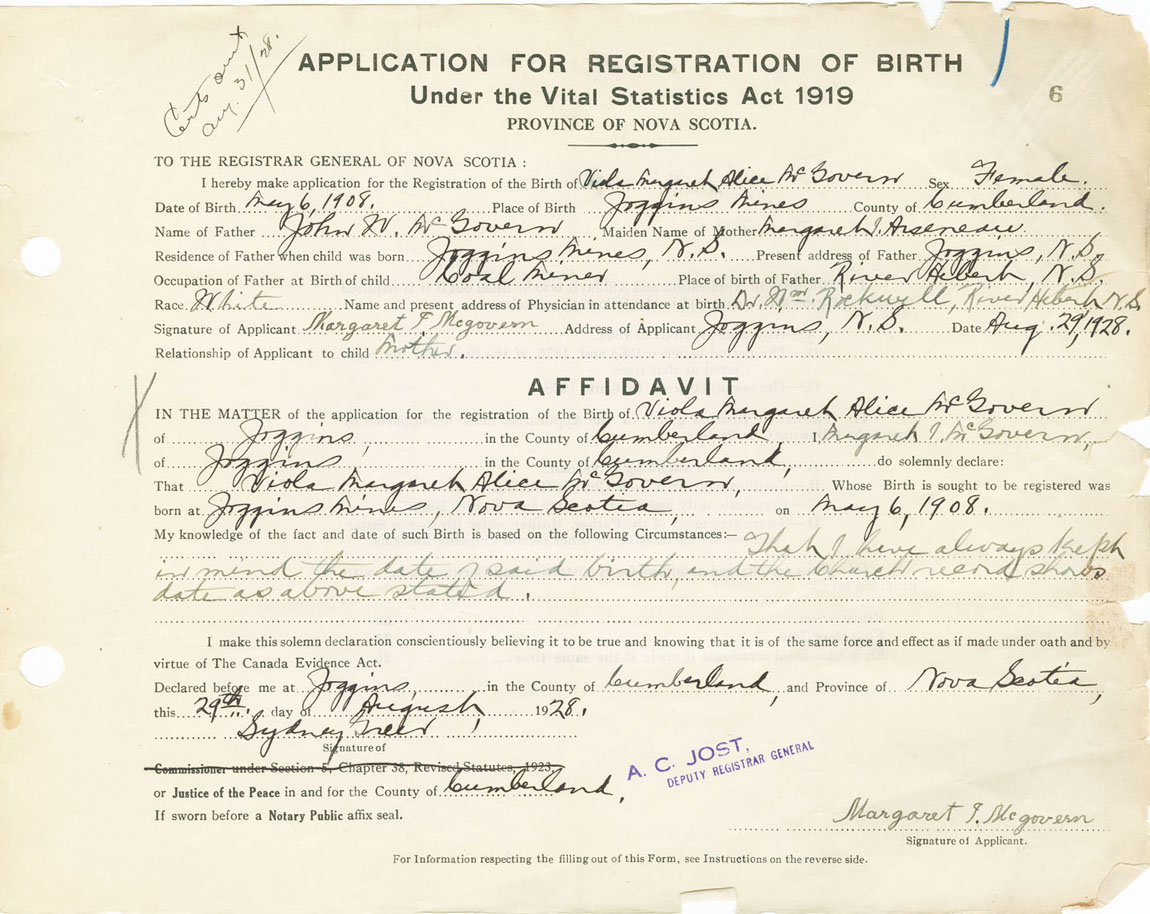 Certs sent
Aug. 31/28.
APPLICATION FOR REGISTRATION OF BIRTH
Under the Vital Statistics Act 1919
6
PROVINCE OF NOVA SCOTIA.
TO THE REGISTRAR GENERAL OF NOVA SCOTIA :
I hereby make application for the Registration of the Birth of Viola Margaret Alice McGovern Sex Female.
Date of Birth May 6, 1908. Place of Birth Joggins Mines County of Cumberland.
Name of Father John W. McGovern Maiden Name of Mother Margaret I. Arseneau
Residence of Father when child was born Joggins Mines, N.S. Present address of Father Joggins, N.S.
Occupation of Father at Birth of child Coal Miner Place of birth of Father River Hebert, N.S.
Race White Name and present address of Physician in attendance at birth Dr. Wm Rockwell, River Hebert N.S.
Signature of Applicant Margaret I. Mcgovern Address of Applicant Joggins, N.S. Date Aug. 29, 1928.
Relationship of Applicant to child Mother.
AFFIDAVIT
IN THE MATTER of the application for the registration of the Birth of Viola Margaret Alice McGovern
of Joggins, in the County of Cumberland, I, Margaret I. McGovern,
of Joggins, in the County of Cumberland, do solemnly declare:
That Viola Margaret Alice McGovern, Whose Birth is sought to be registered was
born at Joggins Mines, Nova Scotia, on May 6, 1908.
My knowledge of the fact and date of such Birth is based on the following Circumstances:— That I have always kept
in mind the date of said birth, and the Church record shows
date as above stated.
I make this solemn declaration conscientiously believing it to be true and knowing that it is of the same force and effect as if made under oath and by
virtue of The Canada Evidence Act.
Declared before me at Joggins, in the County of Cumberland, and Province of Nova Scotia,
this 29th day of August, 1928.
Sydney
Signature of
Commissioner under Section 5, Chapter 38, Revised Statutes, 1923
or Justice of the Peace in and for the County of Cumberland.
A. C. JOST,
DEPUTY REGISTRAR GENERAL
If sworn before a Notary Public affix seal.
Margaret I. Mcgovern
Signature of Applicant.
For Information respecting the filling out of this Form, see Instructions on the reverse side.